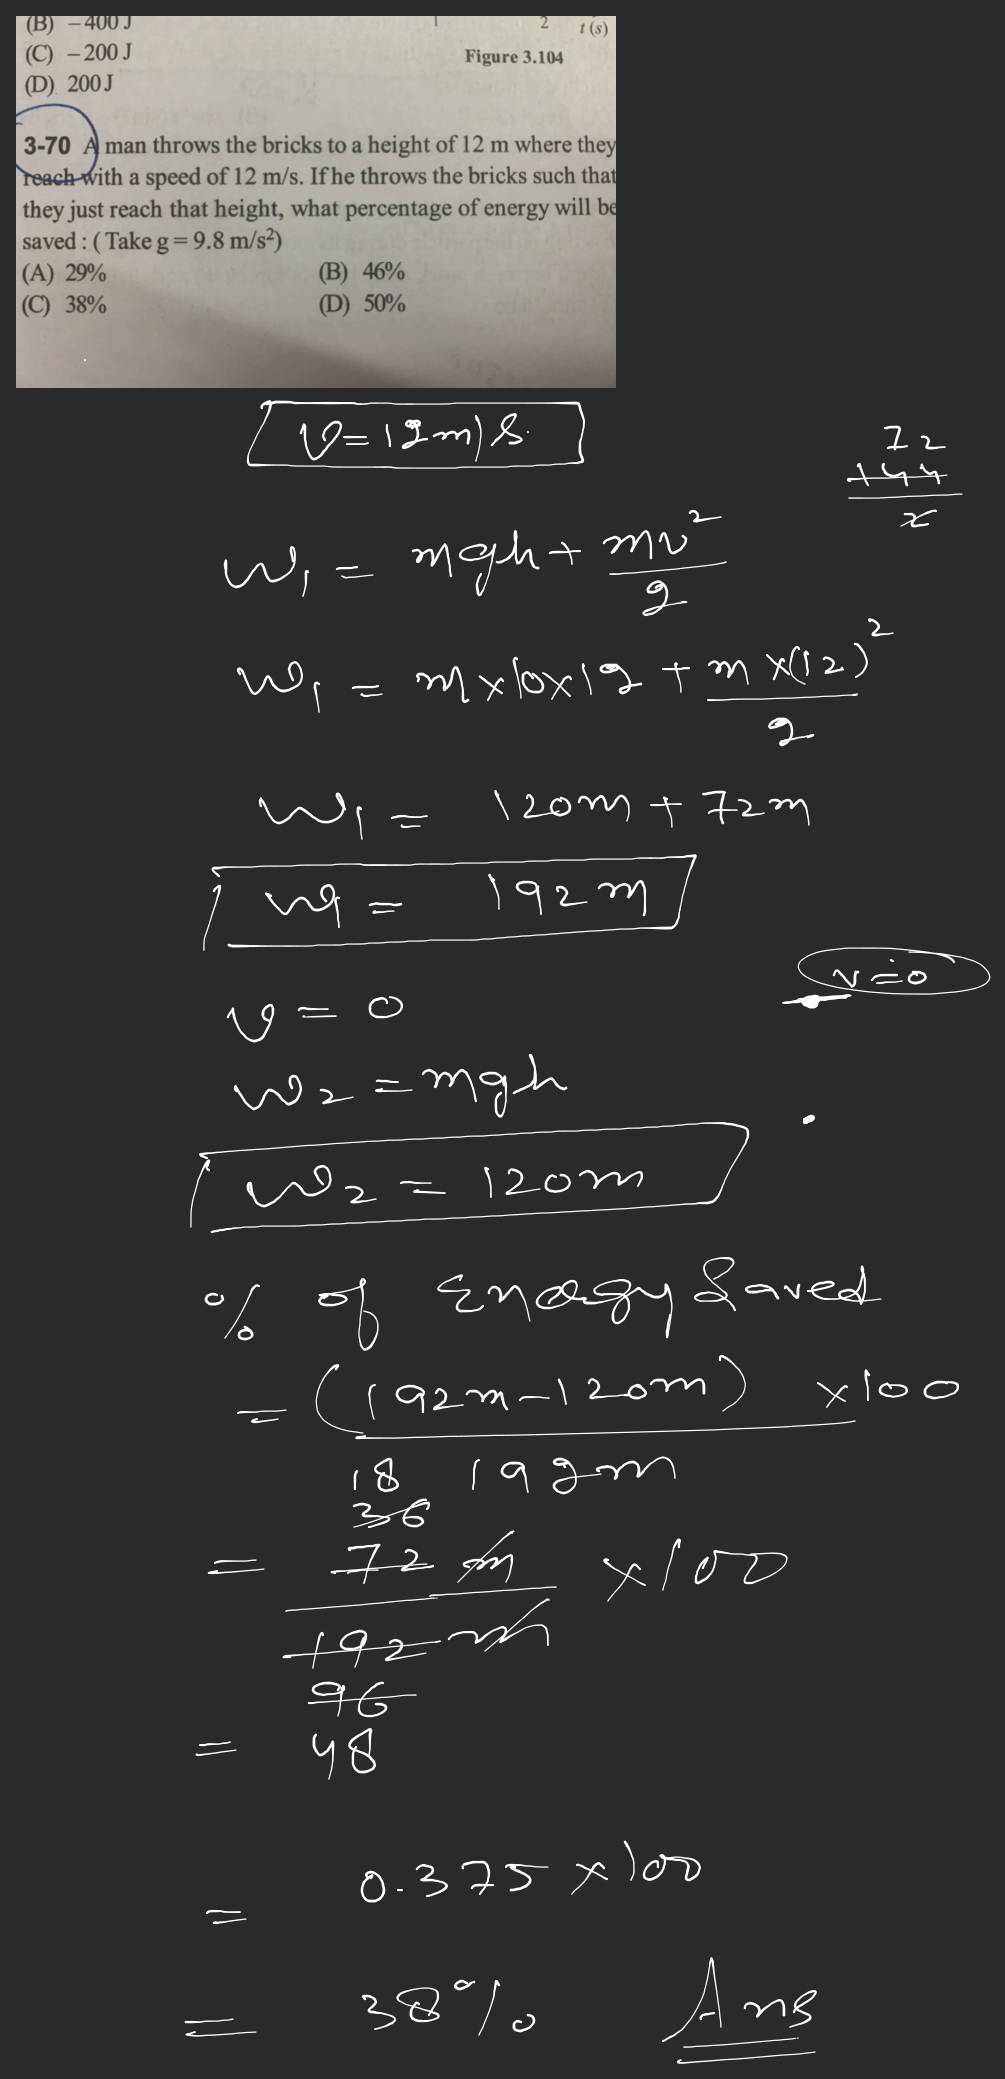 (B) –400 J
(C) –200 J
(D) 200 J
1 2 t (s)
Figure 3.104
3-70 A man throws the bricks to a height of 12 m where they
reach with a speed of 12 m/s. If he throws the bricks such that
they just reach that height, what percentage of energy will be
saved : ( Take g = 9.8 m/s²)
(A) 29% (B) 46%
(C) 38% (D) 50%
v = 12m/s.
72
144
x
W₁ = mgh + mv²/2
W₁ = m×10×12 + m×(12)²/2
W₁ = 120m + 72m
W₁ = 192m
v=0
v = 0
W₂ = mgh
W₂ = 120m
% of Energy Saved
= (192m-120m) ×100
192m
18
36
= 72 m ×100
192 m
96
= 48
= 0.375 × 100
= 38% Ans